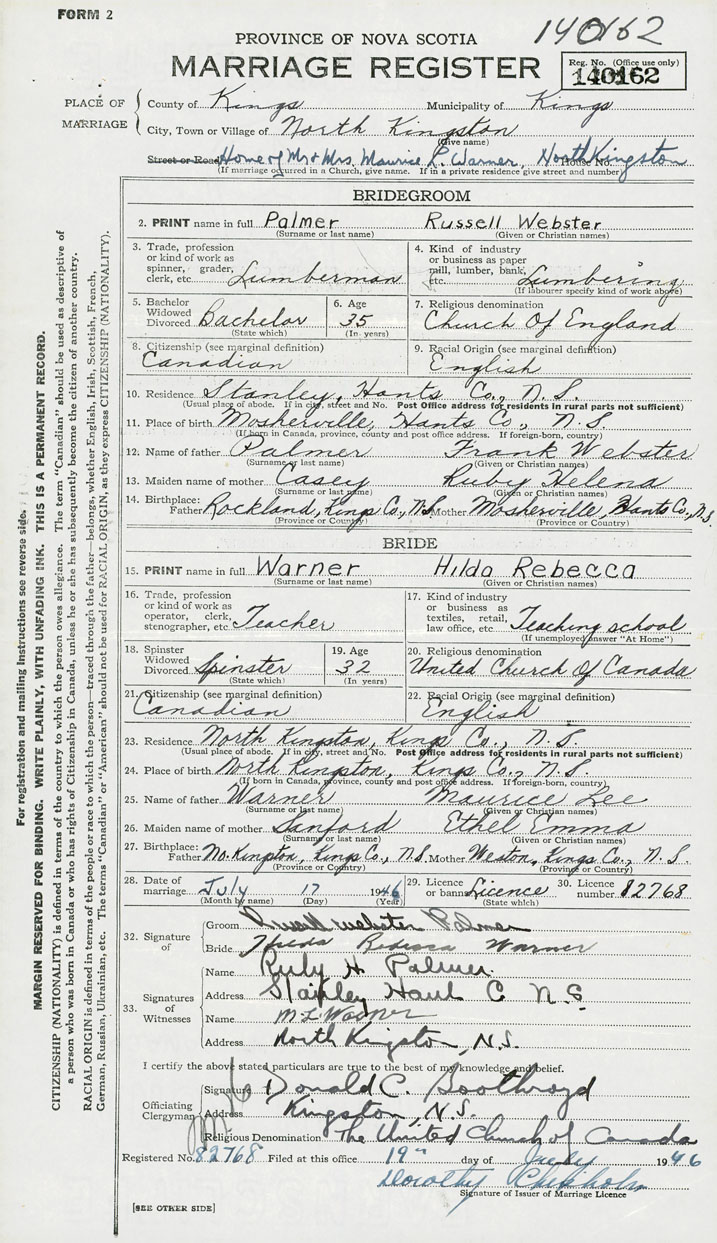 FORM 2
140162
PROVINCE OF NOVA SCOTIA
MARRIAGE REGISTER
Reg. No. (Office use only)
140162
PLACE OF MARRIAGE
County of Kings Municipality of Kings
City, Town or Village of North Kingston
(Give name)
Street or Road Home of Mr & Mrs. Maurice L. Warner, House No. North Kingston
(If marriage occurred in a Church, give name. If in a private residence give street and number)
BRIDEGROOM
2. PRINT name in full Palmer Russell Webster
(Surname or last name) (Given or Christian names)
3. Trade, profession or kind of work as spinner, grader, clerk, etc. Lumberman
4. Kind of industry or business as paper mill, lumber, bank, etc. Lumbering
(If labourer specify kind of work above)
5. Bachelor Widowed Divorced Bachelor
(State which)
6. Age 35
(In years)
7. Religious denomination
Church Of England
8. Citizenship (see marginal definition)
Canadian
9. Racial Origin (see marginal definition)
English
10. Residence Stanley, Hants Co., N.S.
(Usual place of abode. If in city, street and No. Post Office address for residents in rural parts not sufficient)
11. Place of birth Mosherville, Hants Co., N.S.
(If born in Canada, province, county and post office address. If foreign-born, country)
12. Name of father Palmer Frank Webster
(Surname or last name) (Given or Christian names)
13. Maiden name of mother Casey Ruby Helena
(Surname or last name) (Given or Christian names)
14. Birthplace: Father Rockland, Kings Co., N.S. Mother Mosherville, Hants Co., N.S.
(Province or Country) (Province or Country)
BRIDE
15. PRINT name in full Warner Hilda Rebecca
(Surname or last name) (Given or Christian names)
16. Trade, profession or kind of work as operator, clerk, stenographer, etc. Teacher
17. Kind of industry or business as textiles, retail, law office, etc. Teaching school
(If unemployed answer "At Home")
18. Spinster Widowed Divorced Spinster
(State which)
19. Age 32
(In years)
20. Religious denomination
United Church Of Canada
21. Citizenship (see marginal definition)
Canadian
22. Racial Origin (see marginal definition)
English
23. Residence North Kingston, Kings Co., N.S.
(Usual place of abode. If in city, street and No. Post Office address for residents in rural parts not sufficient)
24. Place of birth North Kingston, Kings Co., N.S.
(If born in Canada, province, county and post office address. If foreign-born, country)
25. Name of father Warner Maurice Lee
(Surname or last name) (Given or Christian names)
26. Maiden name of mother Sanford Ethel Emma
(Surname or last name) (Given or Christian names)
27. Birthplace: Father No. Kingston, Kings Co., N.S. Mother Weston, Kings Co., N.S.
(Province or Country) (Province or Country)
28. Date of marriage July 17 1946
(Month by name) (Day) (Year)
29. Licence or banns Licence
(State which)
30. Licence number 82768
32. Signature of
Groom Russell Webster Palmer
Bride Hilda Rebecca Warner
33. Signatures of Witnesses
Name Ruby H. Palmer.
Address Stanley Hants C N S
Name M L Warner
Address North Kingston, N.S.
I certify the above stated particulars are true to the best of my knowledge and belief.
Officiating Clergyman
Signature Donald C. Boothroyd
Address Kingston, N.S.
Religious Denomination The United Church of Canada
Registered No. 82768 Filed at this office 19" day of July 1946
Dorothy Chisholm
Signature of Issuer of Marriage Licence
[SEE OTHER SIDE]
For registration and mailing instructions see reverse side.
MARGIN RESERVED FOR BINDING. WRITE PLAINLY, WITH UNFADING INK. THIS IS A PERMANENT RECORD.
CITIZENSHIP (NATIONALITY) is defined in terms of the country to which the person owes allegiance. The term "Canadian" should be used as descriptive of
a person who was born in Canada or who has rights of Citizenship in Canada, unless he or she has subsequently become the citizen of another country.
RACIAL ORIGIN is defined in terms of the people or race to which the person—traced through the father—belongs, whether English, Irish, Scottish, French,
German, Russian, Ukrainian, etc. The terms "Canadian" or "American" should not be used for RACIAL ORIGIN, as they express CITIZENSHIP (NATIONALITY).